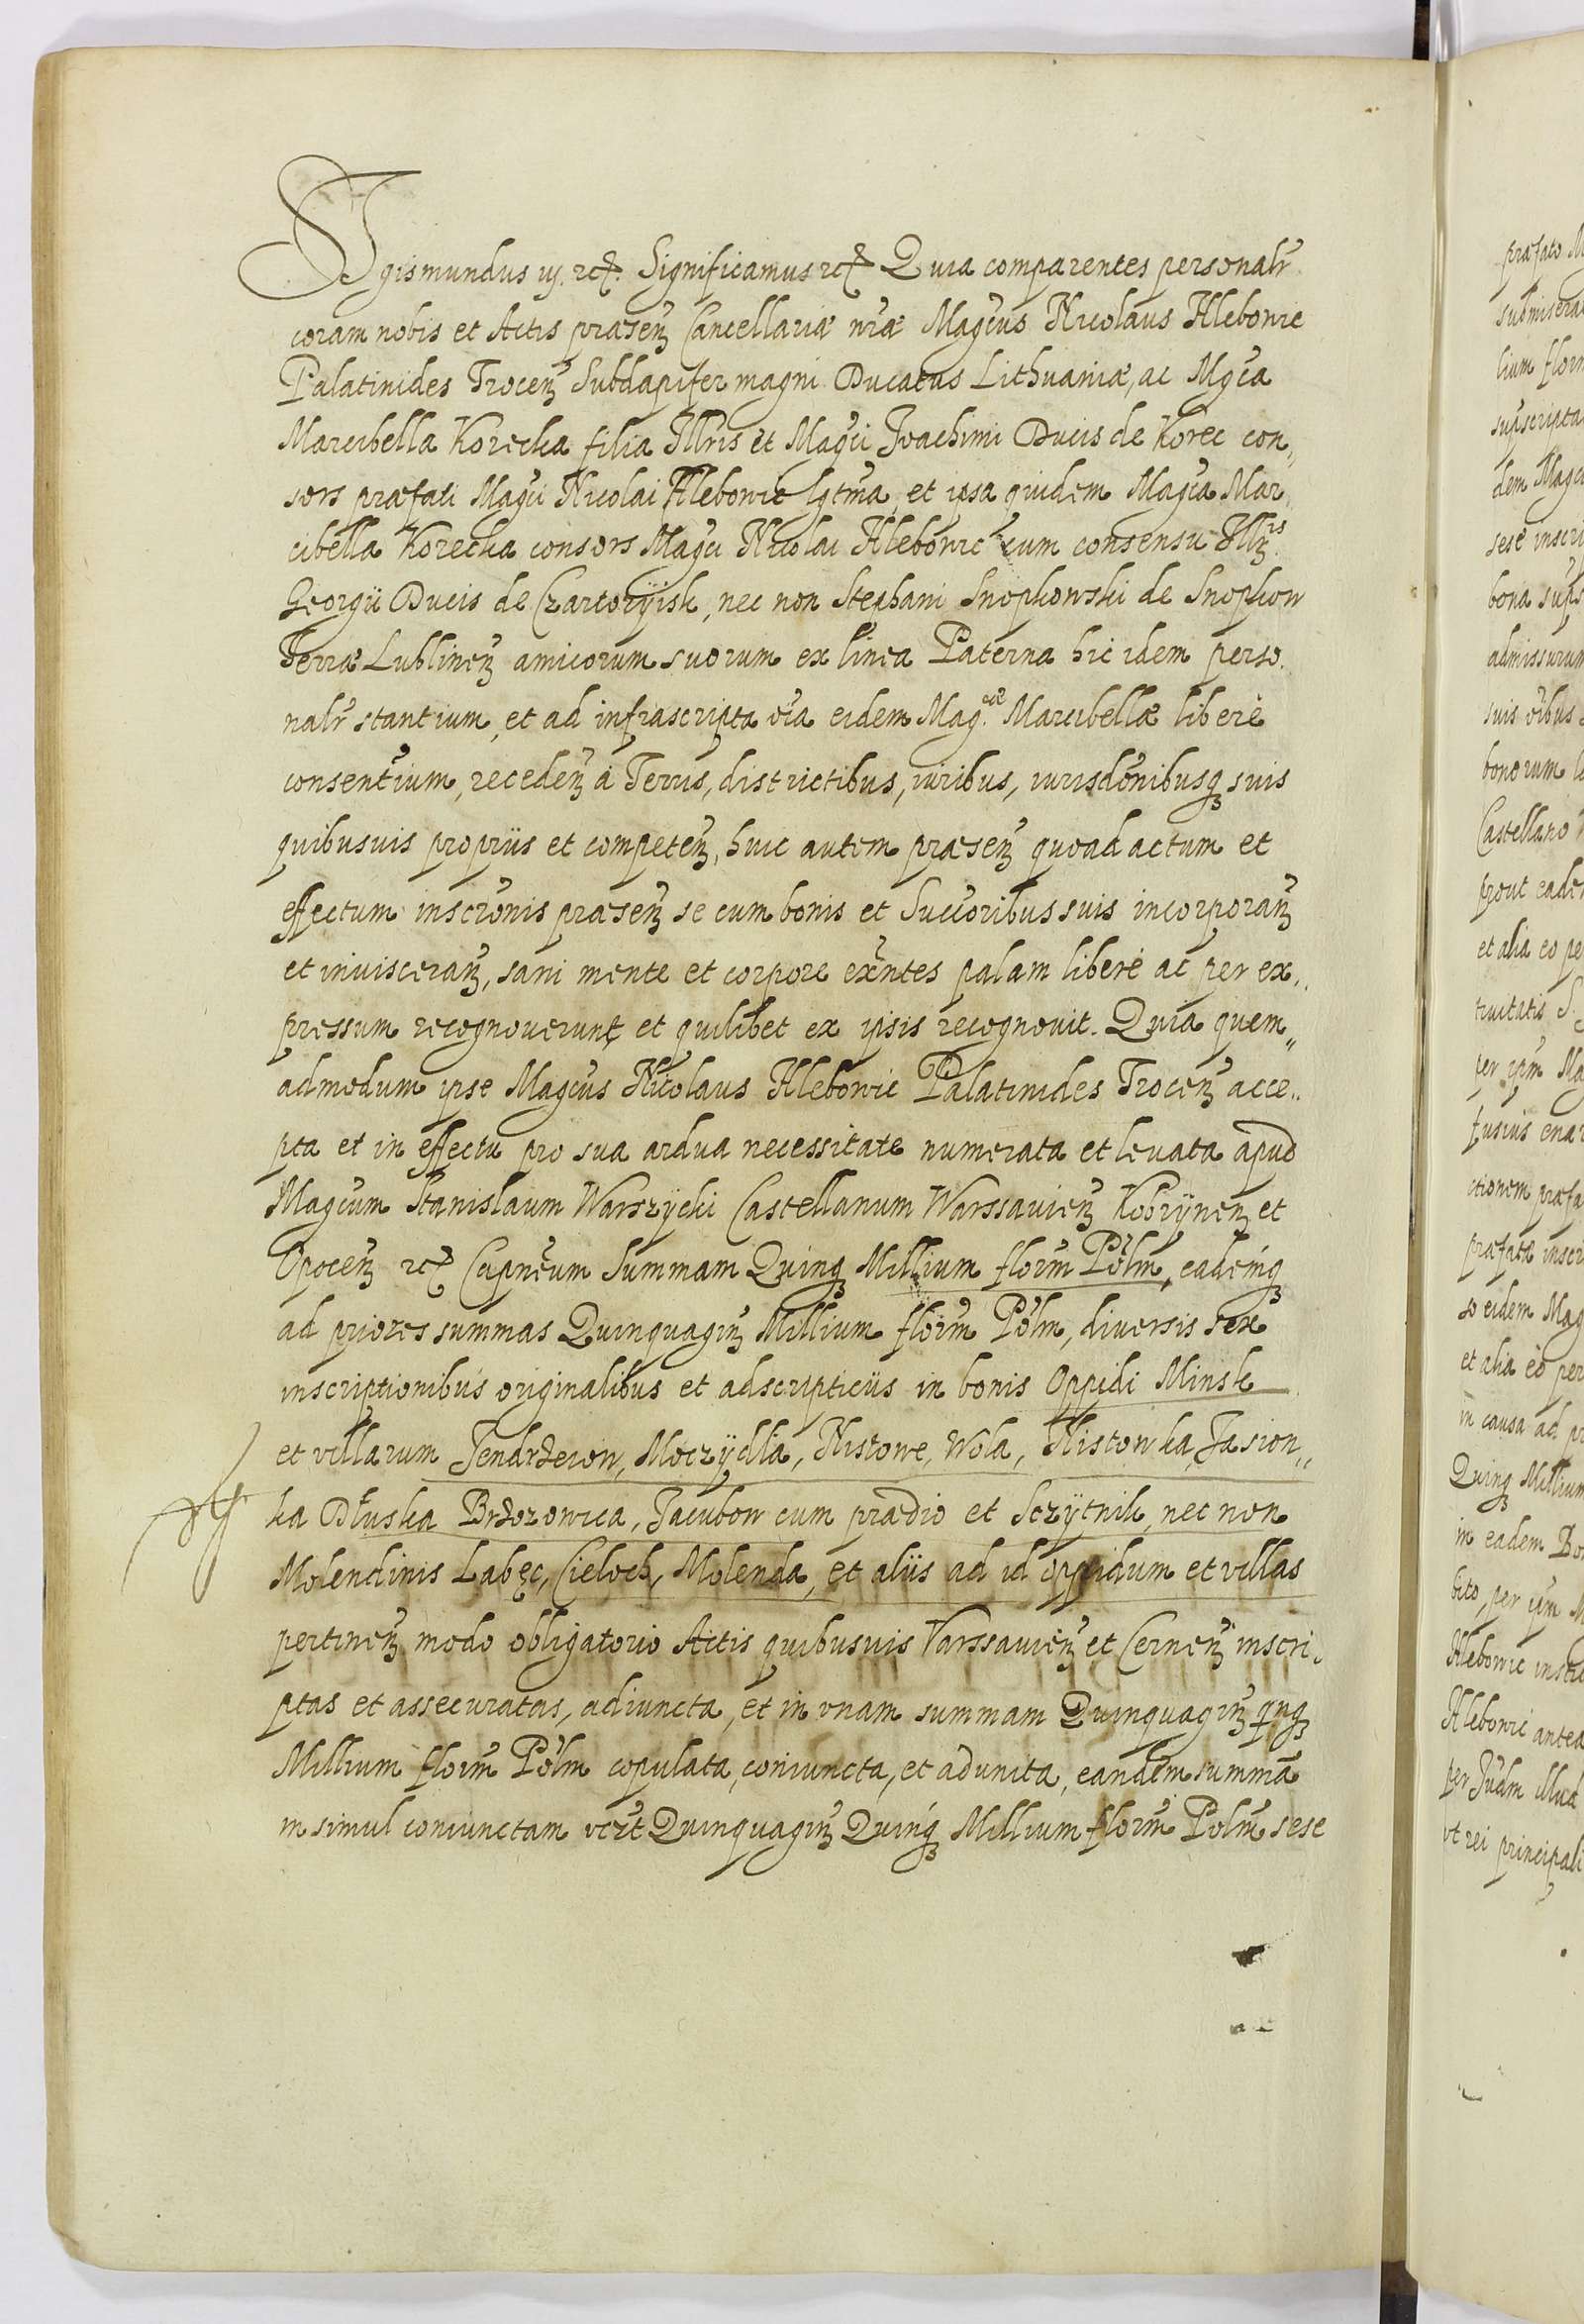 Sigismundus iij. etc. Significamus etc. Quia comparentes personalr
coram nobis et Actis præsen Cancellariæ nræ Magcus Nicolaus Hlebowic
Palatinides Trocen Subdapifer magni Ducatus Lithuaniæ, ac Mgca
Marcibella Korecka filia Illris et Magci Joachimi Ducis de Korec con„
sors præfati Magci Nicolai Hlebowic lgtma, et ipsa quidem Magca Mar
cibella Korecka consors Magci Nicolai Hlebowic cum consensu Illris
Georgii Ducis de Czartoryisk, nec non Stephani Snopkowski de Snopkow
Terræ Lublinen amicorum suorum ex linea Paterna hic idem perso.
nalr stantium, et ad infrascripta oia eidem Mag.cæ Marcibellæ libere
consentium, receden a Terris, districtibus, iuribus, iurisdonibusq suis
quibusuis propriis et competen, huic autem præsen quoad actum et
effectum inscronis præsen se cum bonis et Succoribus suis incorporan
et inuisceran, sani mente et corpore exntes palam libere ac per ex„
pressum recognoverunt et quilibet ex ipsis recognouit. Quia quem„
admodum ipse Magcus Nicolaus Hlebowic Palatinides Trocen acce„
pta et in effectu pro sua ardua necessitate numerata et leuata apud
Magcum Stanislaum Warszycki Castellanum Warssauien Kobrynen et
Opocen etc. Capneum Summam Quinq Millium florm Polm, eademq
ad priores summas Quinquagin Millium florm Polm, diuersis sex
inscriptionibus originalibus et adscripticiis in bonis Oppidi Minsk
et villarum Jendrzeiow, Moczydla, Nistowe, Wola, Nistowka, Jasion„
ka Dłuska Brzozowica, Jacubow cum prædio et Sczytnik, nec non
Molendinis Labęc, Cieloch, Molenda, et aliis ad id oppidum et villas
pertinen modo obligatorio Actis quibusuis Varssauien et Cernen inscri„
ptas et assecuratas, adiuncta, et in vnam summam Quinquagin qnq
Millium florm Polm copulata, coniuncta, et adunita, eandem summã
in simul coniunctam vczt Quinquagin Quinq Millium florm Polm sese
præfato M
submisera
lium flor
supscripta
dem Magc
sese inscri
bona sups
admissurum
suis oibus
bonorum
Castellano
prout eade
et alia eo pe
tiuitatis S
per ipm Ma
fusius enar
ctionem præfa
præfatæ inscr
so eidem Mag
et alia eo per
in causa ad pr
Quinq Millium
in eadem Bo
bito, per ipm M
Hlebowic inscr
Hlebowic antea
per Judm illud
vt rei principali